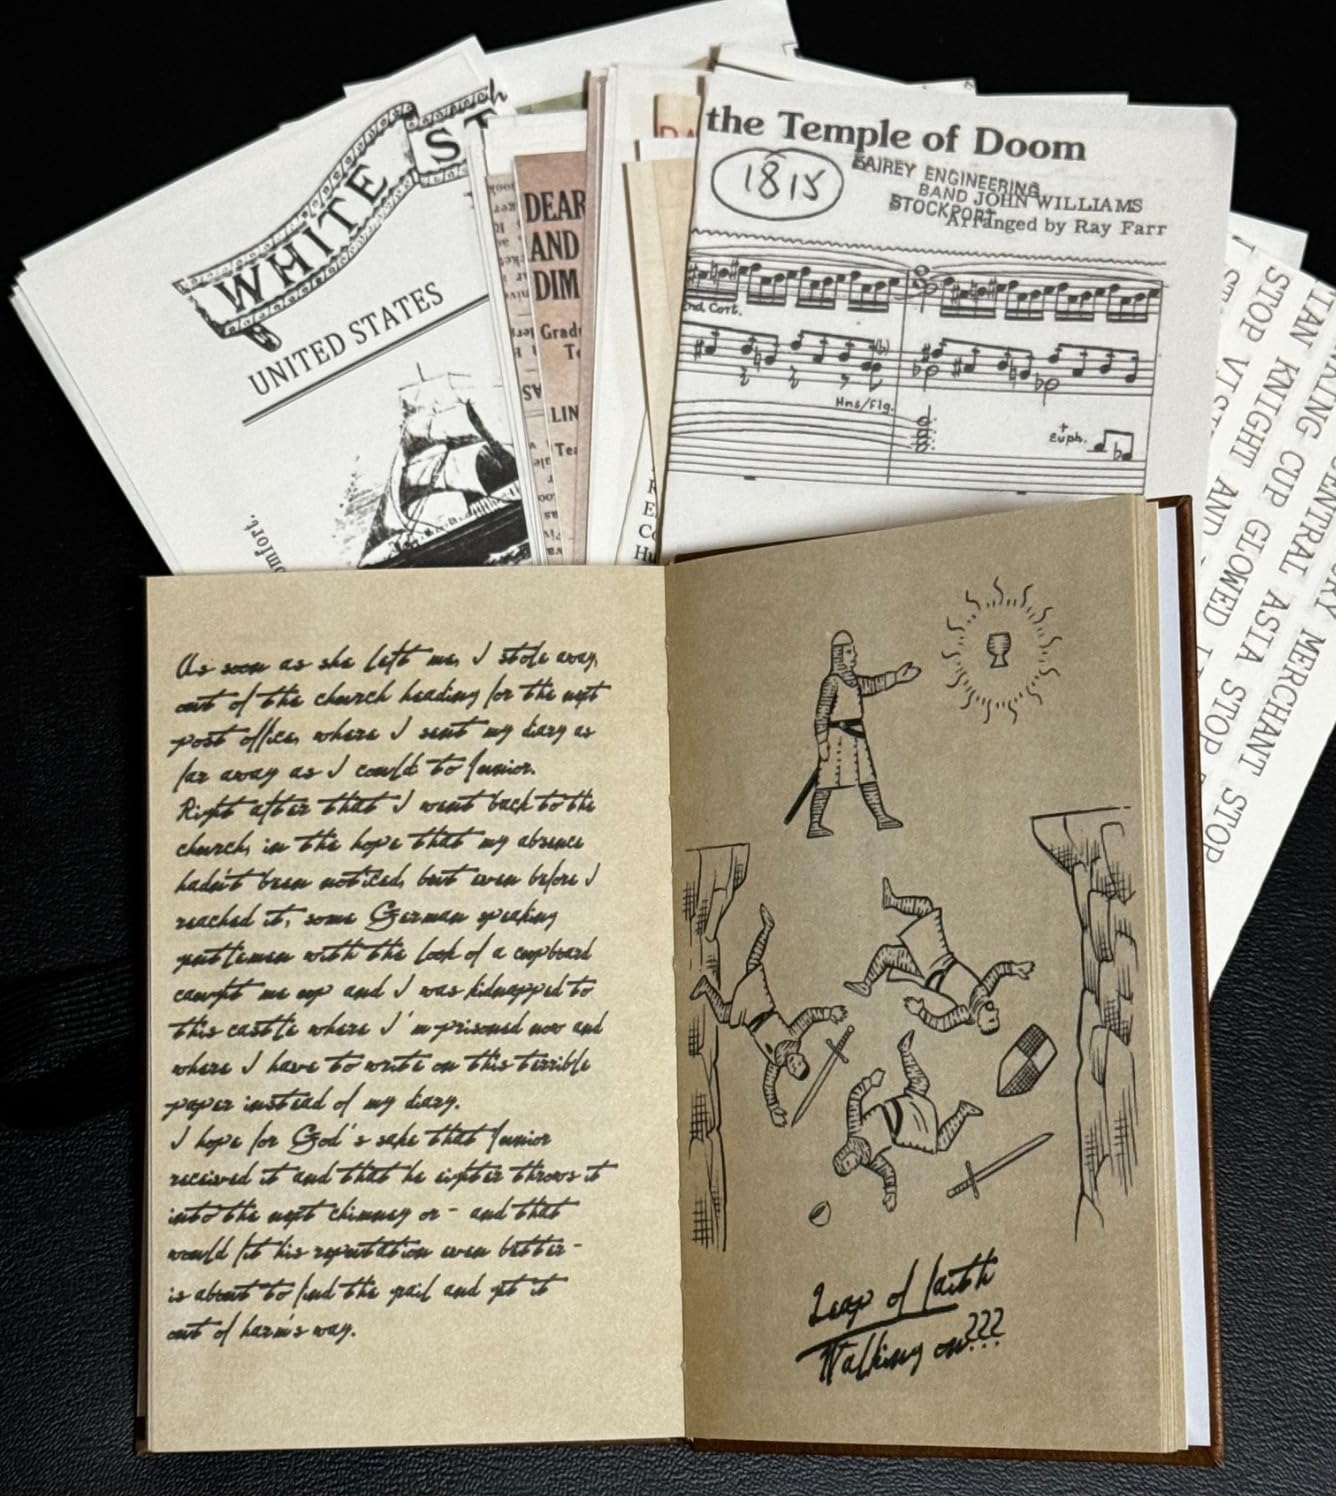 WHITE ST
UNITED STATES
omfort.
DEAR
AND
DIM
Grad
Te
LIN
Tea
the Temple of Doom
1815
FAIREY ENGINEERING
BAND JOHN WILLIAMS
STOCKPORT
Arranged by Ray Farr
2nd Cort.
Hns/Flg.
+
Euph.
RY MERCHANT STOP
RING CUP GLOWED
ENTRAL ASIA STOP
TIAN KNIGHT AND
STOP
As soon as she left me, I stole away,
out of the church heading for the next
post office, where I sent my diary as
far away as I could to Junior.
Right after that I went back to the
church, in the hope that my absence
hadn't been noticed, but even before I
reached it, some German speaking
gentlemen with the look of a cupboard
caught me up and I was kidnapped to
this castle where I'm prisoned now and
where I have to write on this terrible
paper instead of my diary.
I hope for God's sake that Junior
received it and that he eighter throws it
into the next chimney or - and that
would fit his reputation even better -
is about to find the grail and get it
out of harm's way.
Leap of faith
Walking on???